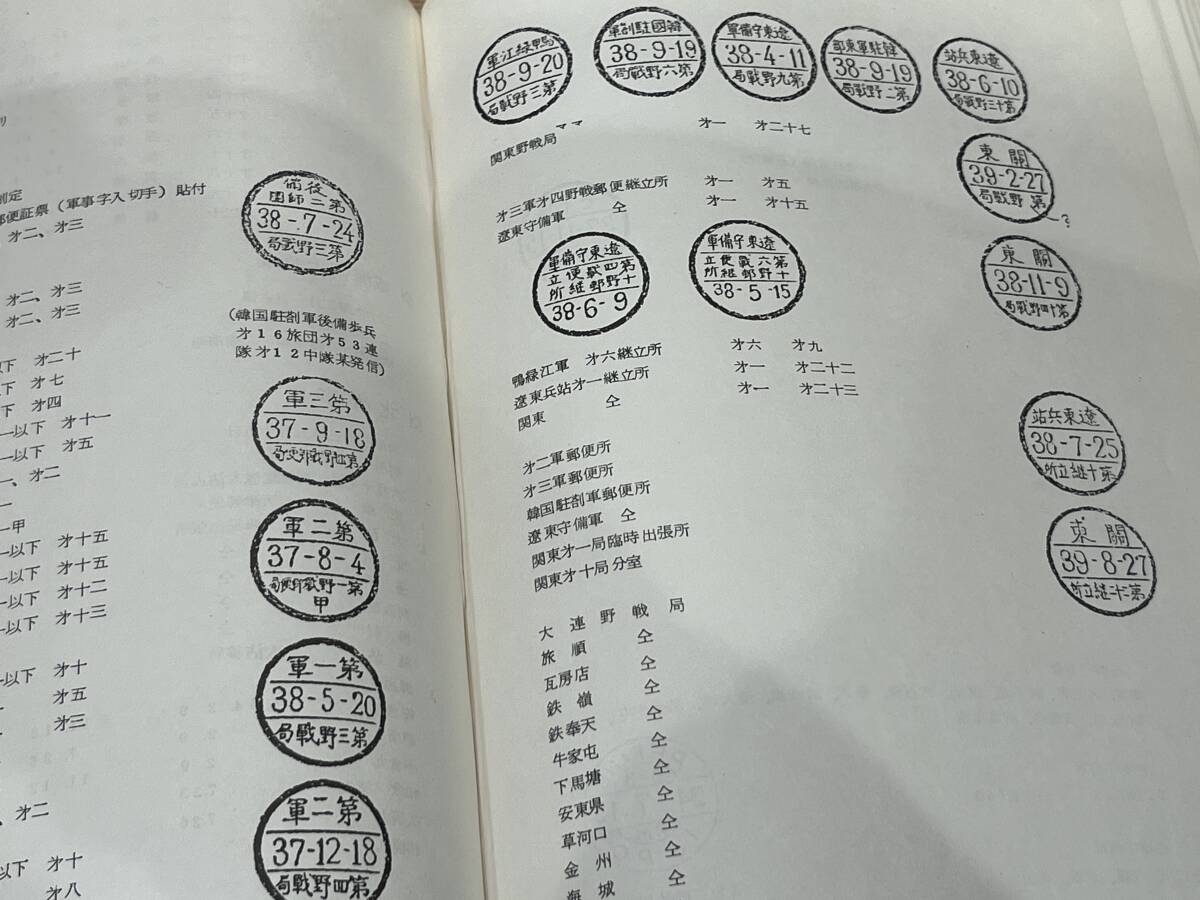 制定
郵便証票（軍事字入切手）貼付
才二、才三
才二、才三
才二、才三
以下 才二十
下 才七
下 才四
一以下 才十一
一以下 才五
一、才二
一
一甲
一以下 才十五
一以下 才十五
一以下 才十二
一以下 才十三
一以下 才十
才五
才三
才二
以下 才十
才八
備後
団師二第
38-7-24
局戦野三第
（韓国駐剳軍後備歩兵
才16旅団才53連
隊才12中隊某発信）
軍三第
37-9-18
軍二第
37-8-4
局便郵戰野一第
甲
軍一第
38-5-20
局戰野三第
軍二第
37-12-18
局戰野四第
軍江緑鴨
38-9-20
局戰野三第
軍剳駐國韓
38-9-19
局戰野六第
軍備守東遼
38-4-11
局戰野九第
部東軍駐韓
38-9-19
局戰野二第
站兵東遼
38-6-10
局戰野三十第
関東野戦局 ママ 才一 才二十七
東關
39-2-27
局戰野 第
?
才三軍才四野戦郵便継立所 才一 才五
遼東守備軍 仝 才一 才十五
軍備守東遼
立便戰四第
所継郵野十
38-6-9
軍備守東遼
立便戰六第
所継郵野十
38-5-15
東關
38-11-9
局戰野四十第
鴨緑江軍 才六継立所 才六 才九
遼東兵站才一継立所 才一 才二十二
関東 仝 才一 才二十三
站兵東遼
38-7-25
所立継十第
才二軍郵便所
才三軍郵便所
韓国駐剳軍郵便所
遼東守備軍 仝
関東才一局臨時出張所
関東才十局分室
東關
39-8-27
所立継二十第
大連野戦局
旅順 仝
瓦房店 仝
鉄嶺 仝
鉄奉天 仝
牛家屯 仝
下馬塘 仝
安東県 仝
草河口 仝
金州 仝
海城 仝